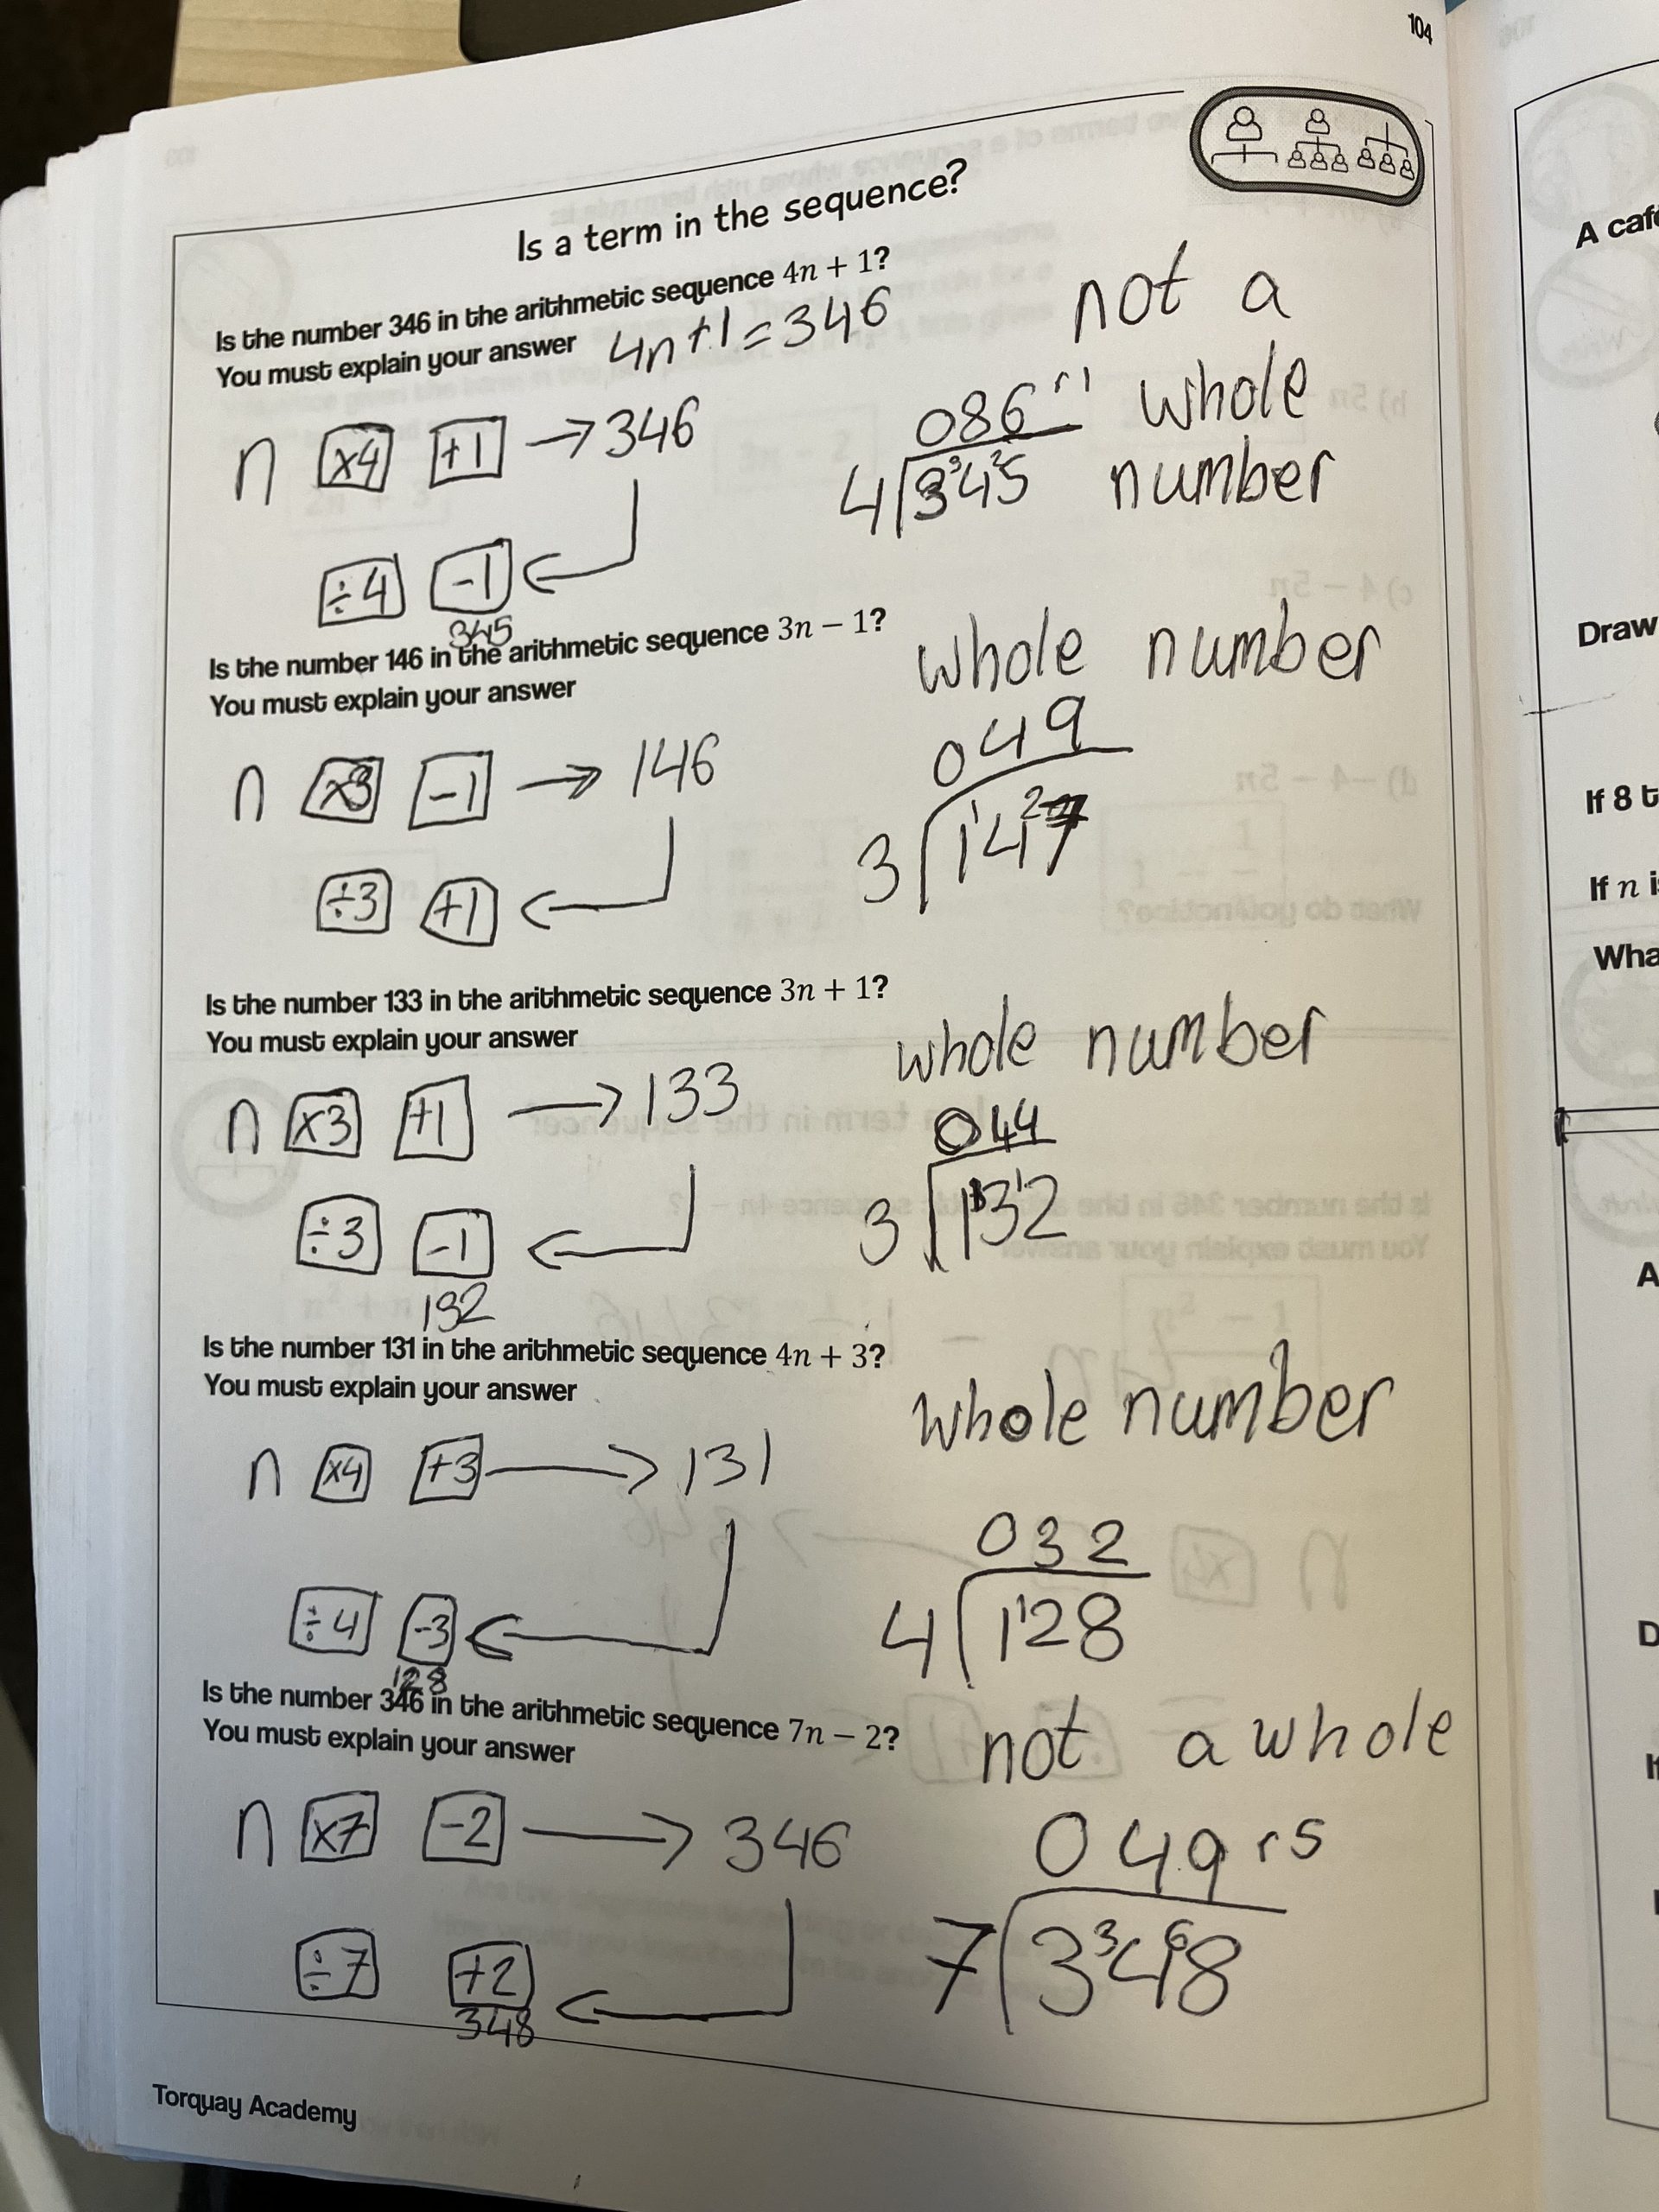 104
Is a term in the sequence?
Is the number 346 in the arithmetic sequence 4n + 1?
You must explain your answer
4n +1 = 346
not a
whole
number
n ×4 +1 → 346
÷4 -1
345
086 r1
4 3³4²5
Is the number 146 in the arithmetic sequence 3n − 1?
You must explain your answer
whole number
n ×3 -1 → 146
÷3 +1
049
3 1¹4²7
Is the number 133 in the arithmetic sequence 3n + 1?
You must explain your answer
whole number
n ×3 +1 → 133
÷3 -1
132
044
3 13¹2
Is the number 131 in the arithmetic sequence 4n + 3?
You must explain your answer
whole number
n ×4 +3 → 131
÷4 -3
128
032
4 1¹28
Is the number 346 in the arithmetic sequence 7n − 2?
You must explain your answer
not a whole
n ×7 -2 → 346
÷7 +2
348
049 r5
7 3³4⁶8
Torquay Academy
A café
Draw
If 8 t
If n i
Wha
A
D